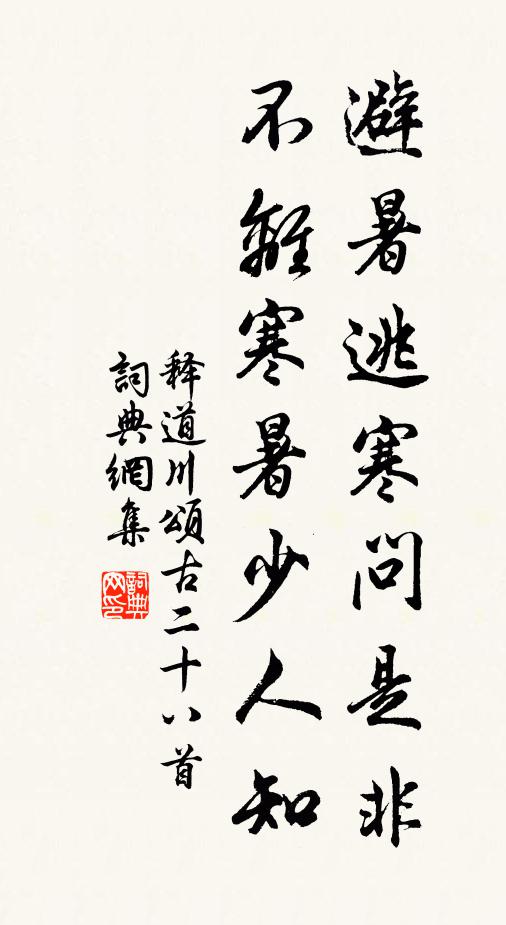 避暑逃寒問是非
不離寒暑少人知
释道川頌古二十八首
詞典網集
詞典网印